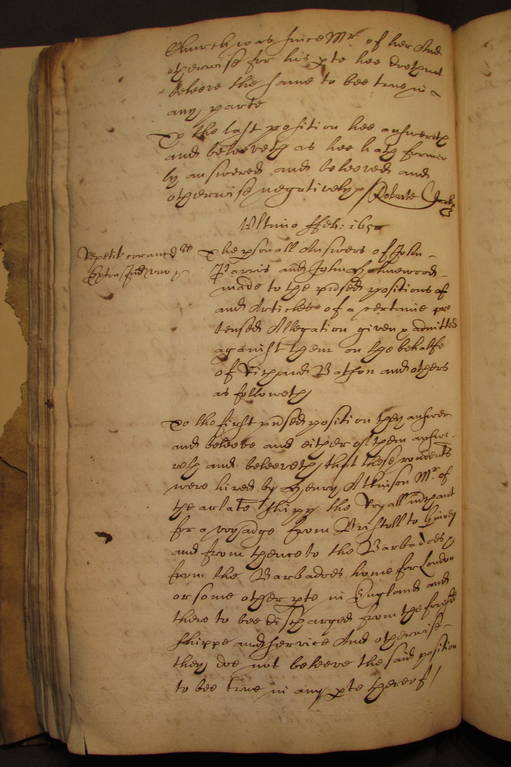 Church was since Mr. of her And
otherwise for his pte hee doth not
beleeve the same to bee true in
any parte
To the last position hee answereth
and beleeveth as hee hath former
ly answered and beleeved and
otherwise negatively /
Ultimo ffeb: 165
Repetit coram
The psonall Answers of John
Parris and John
made to the ptnsed positions of
and Articles of a certaine pre
tensed Allegation given & admitted
against them on the behalfe
of Richard Batson and others
as followeth
To the first ptnsed position they answer
and beleeve and either of them answe
reth and beleeveth that these rendents
were hired by Henry Atkinson Mr. of
the arlate shipp the Royall
for a voyadge from Bristoll to Guiney
and from thence to the Barbadoes
from the Barbadoes home for London
or some other pte in England and
there to bee discharged from the said
shippe and service And otherwise
they doe not beleeve the said position
to bee true in any pte thereof /